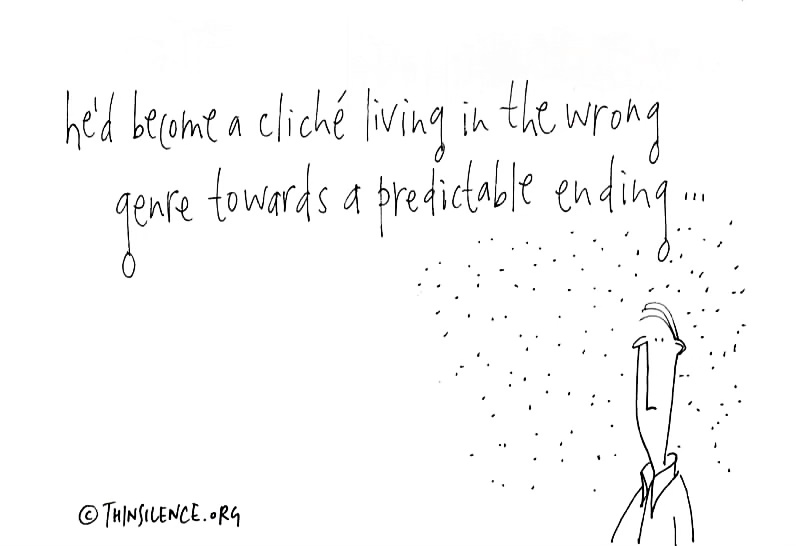 he'd become a cliché living in the wrong
genre towards a predictable ending...
© THINSILENCE.ORG